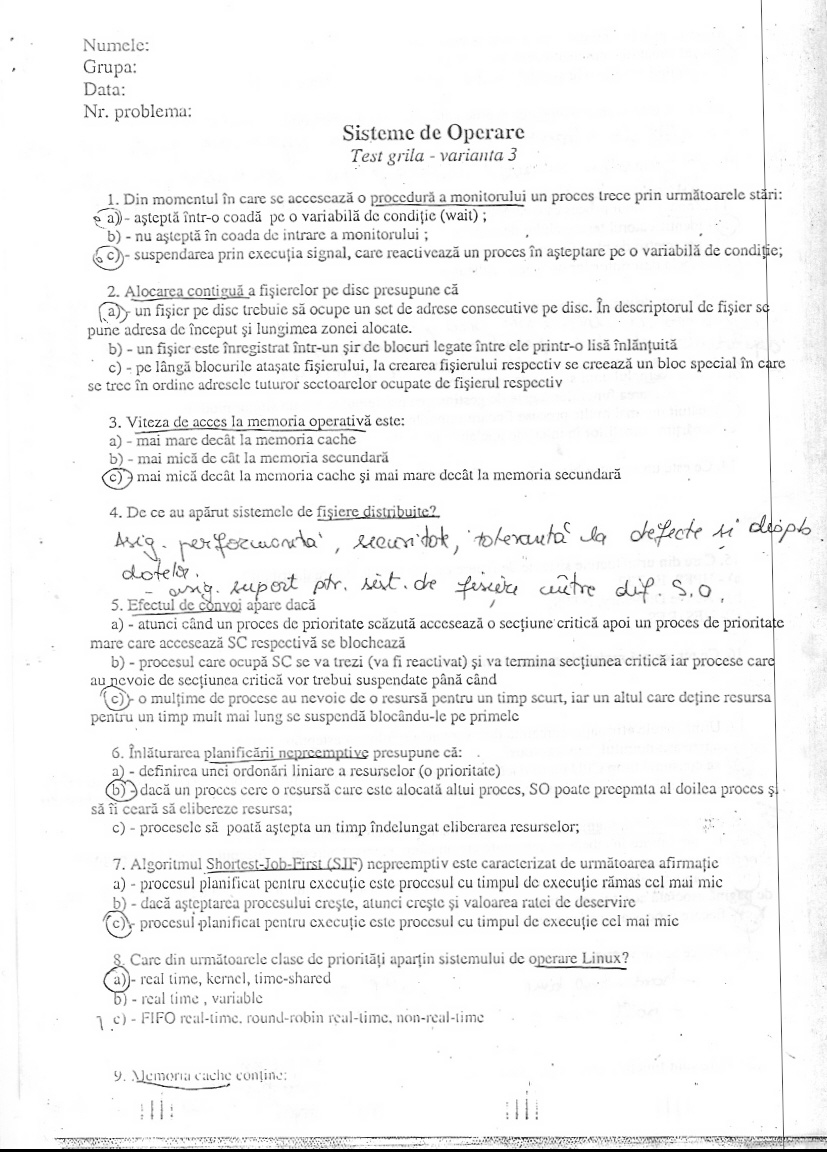 Numele:
Grupa:
Data:
Nr. problema:
Sisteme de Operare
Test grila - varianta 3
1. Din momentul în care se accesează o procedură a monitorului un proces trece prin următoarele stări:
a) - aşteptă într-o coadă pe o variabilă de condiţie (wait) ;
b) - nu aşteptă în coada de intrare a monitorului ;
c) - suspendarea prin execuţia signal, care reactivează un proces în aşteptare pe o variabilă de condiţie;
2. Alocarea contiguă a fişierelor pe disc presupune că
a) - un fişier pe disc trebuie să ocupe un set de adrese consecutive pe disc. În descriptorul de fişier se
pune adresa de început şi lungimea zonei alocate.
b) - un fişier este înregistrat într-un şir de blocuri legate între ele printr-o lisă înlănţuită
c) - pe lângă blocurile ataşate fişierului, la crearea fişierului respectiv se crează un bloc special în care
se trec în ordine adresele tuturor sectoarelor ocupate de fişierul respectiv
3. Viteza de acces la memoria operativă este:
a) - mai mare decât la memoria cache
b) - mai mică de cât la memoria secundară
c) - mai mică decât la memoria cache şi mai mare decât la memoria secundară
4. De ce au apărut sistemele de fişiere distribuite?
Asig. performanta, securitate, toleranta la defecte si
datelor.
- asig. suport ptr. sist. de fisiere către dif. S.O.
5. Efectul de convoi apare dacă
a) - atunci când un proces de prioritate scăzută accesează o secţiune critică apoi un proces de prioritate
mare care accesează SC respectivă se blochează
b) - procesul care ocupă SC se va trezi (va fi reactivat) şi va termina secţiunea critică iar procese care
au nevoie de secţiunea critică vor trebui suspendate până când
c) - o mulţime de procese au nevoie de o resursă pentru un timp scurt, iar un altul care deţine resursa
pentru un timp mult mai lung se suspendă blocându-le pe primele
6. Înlăturarea planificării nepreemptive presupune că:
a) - definirea unei ordonări liniare a resurselor (o prioritate)
b) - dacă un proces cere o resursă care este alocată altui proces, SO poate preepmta al doilea proces şi
să îi ceară să elibereze resursa;
c) - procesele să poată aştepta un timp îndelungat eliberarea resurselor;
7. Algoritmul Shortest-Job-First (SJF) nepreemptiv este caracterizat de următoarea afirmaţie
a) - procesul planificat pentru execuţie este procesul cu timpul de execuţie rămas cel mai mic
b) - dacă aşteptarea procesului creşte, atunci creşte şi valoarea ratei de deservire
c) - procesul planificat pentru execuţie este procesul cu timpul de execuţie cel mai mic
8. Care din următoarele clase de priorităţi aparţin sistemului de operare Linux?
a) - real time, kernel, time-shared
b) - real time , variable
c) - FIFO real-time, round-robin real-time, non-real-time
9. Memoria cache conţine: